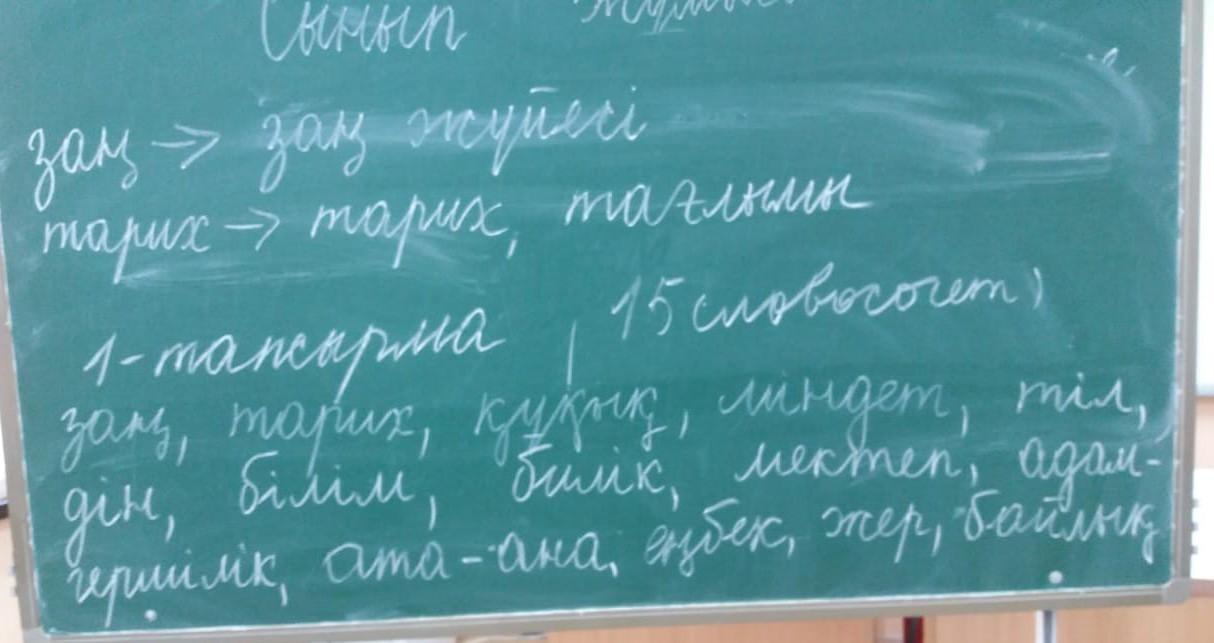 Сынып
заң → заң жүйесі
тарих → тарих, тағлымы
1-тапсырма | 15 словосочет)
заң, тарих, құқық, міндет, тіл,
дін, білім, билік, мектеп, адам-
гершілік, ата-ана, еңбек, жер, байлық